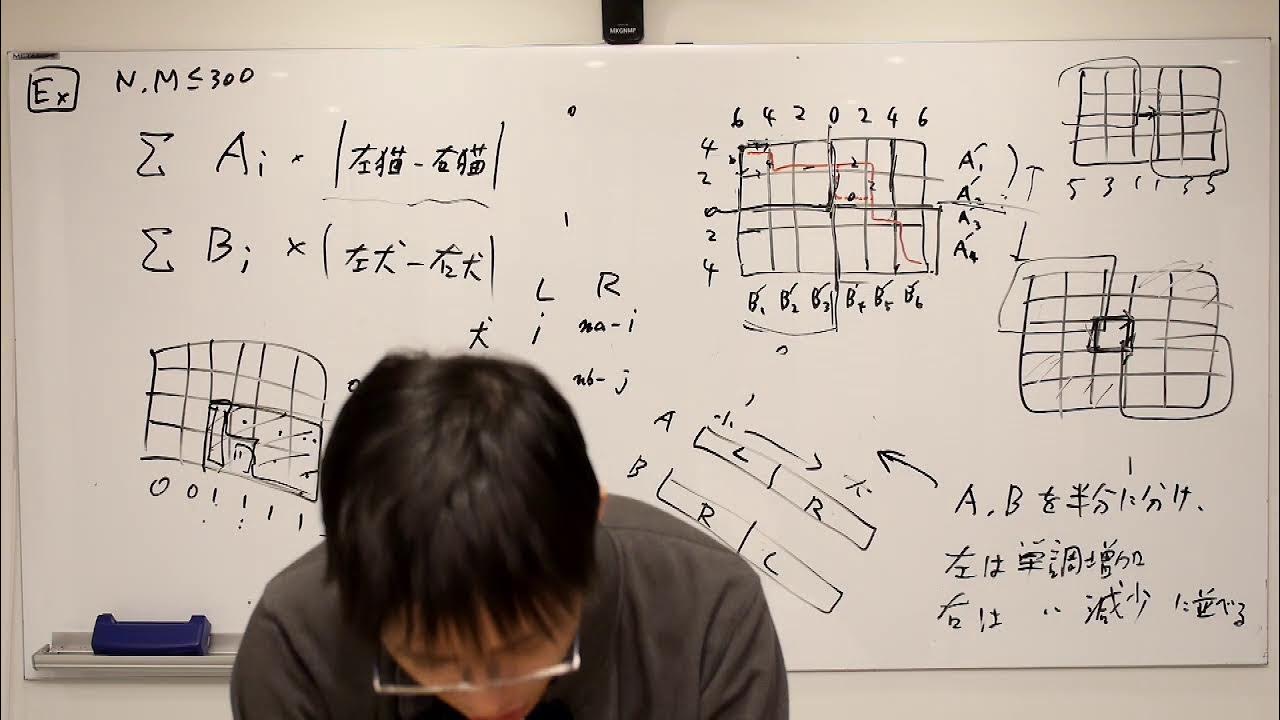 MKGNMP
Ex N,M≤300
Σ Ai × |左猫-右猫|
Σ Bi × |左犬-右犬|
0
1
L R
犬 i na-i
nb-j
0 0 1 1 1 1
6 4 2 0 2 4 6
4
2
0
2
4
A'1
A'2
A'3
A'4
B'1 B'2 B'3 B'4 B'5 B'6
0
5 3 1 1 3 5
A 小 大
L R
B
R L
A,Bを半分に分け、
左は単調増加
右は 〃 減少 に並べる